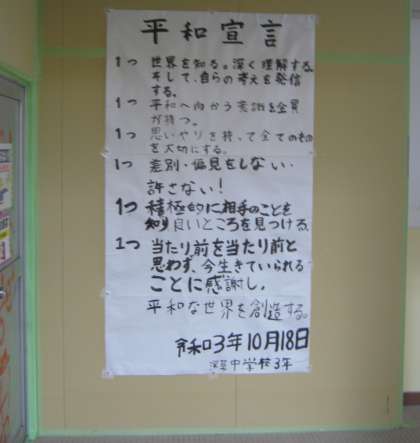 平和宣言
1つ 世界を知る。深く理解する。
そして、自らの考えを発信
する。
1つ 平和へ向かう意識を全員
が持つ。
1つ 思いやりを持って全てのもの
を大切にする。
1つ 差別・偏見をしない・
許さない!
1つ 積極的に相手のことを
知り良いところを見つける。
1つ 当たり前を当たり前と
思わず、今生きていられる
ことに感謝し、
平和な世界を創造する。
令和3年10月18日
中学校3年